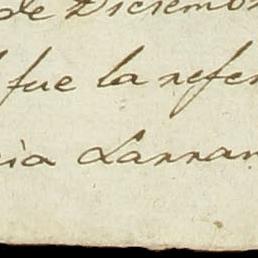 de Diciemb
fue la refer
cia Larran